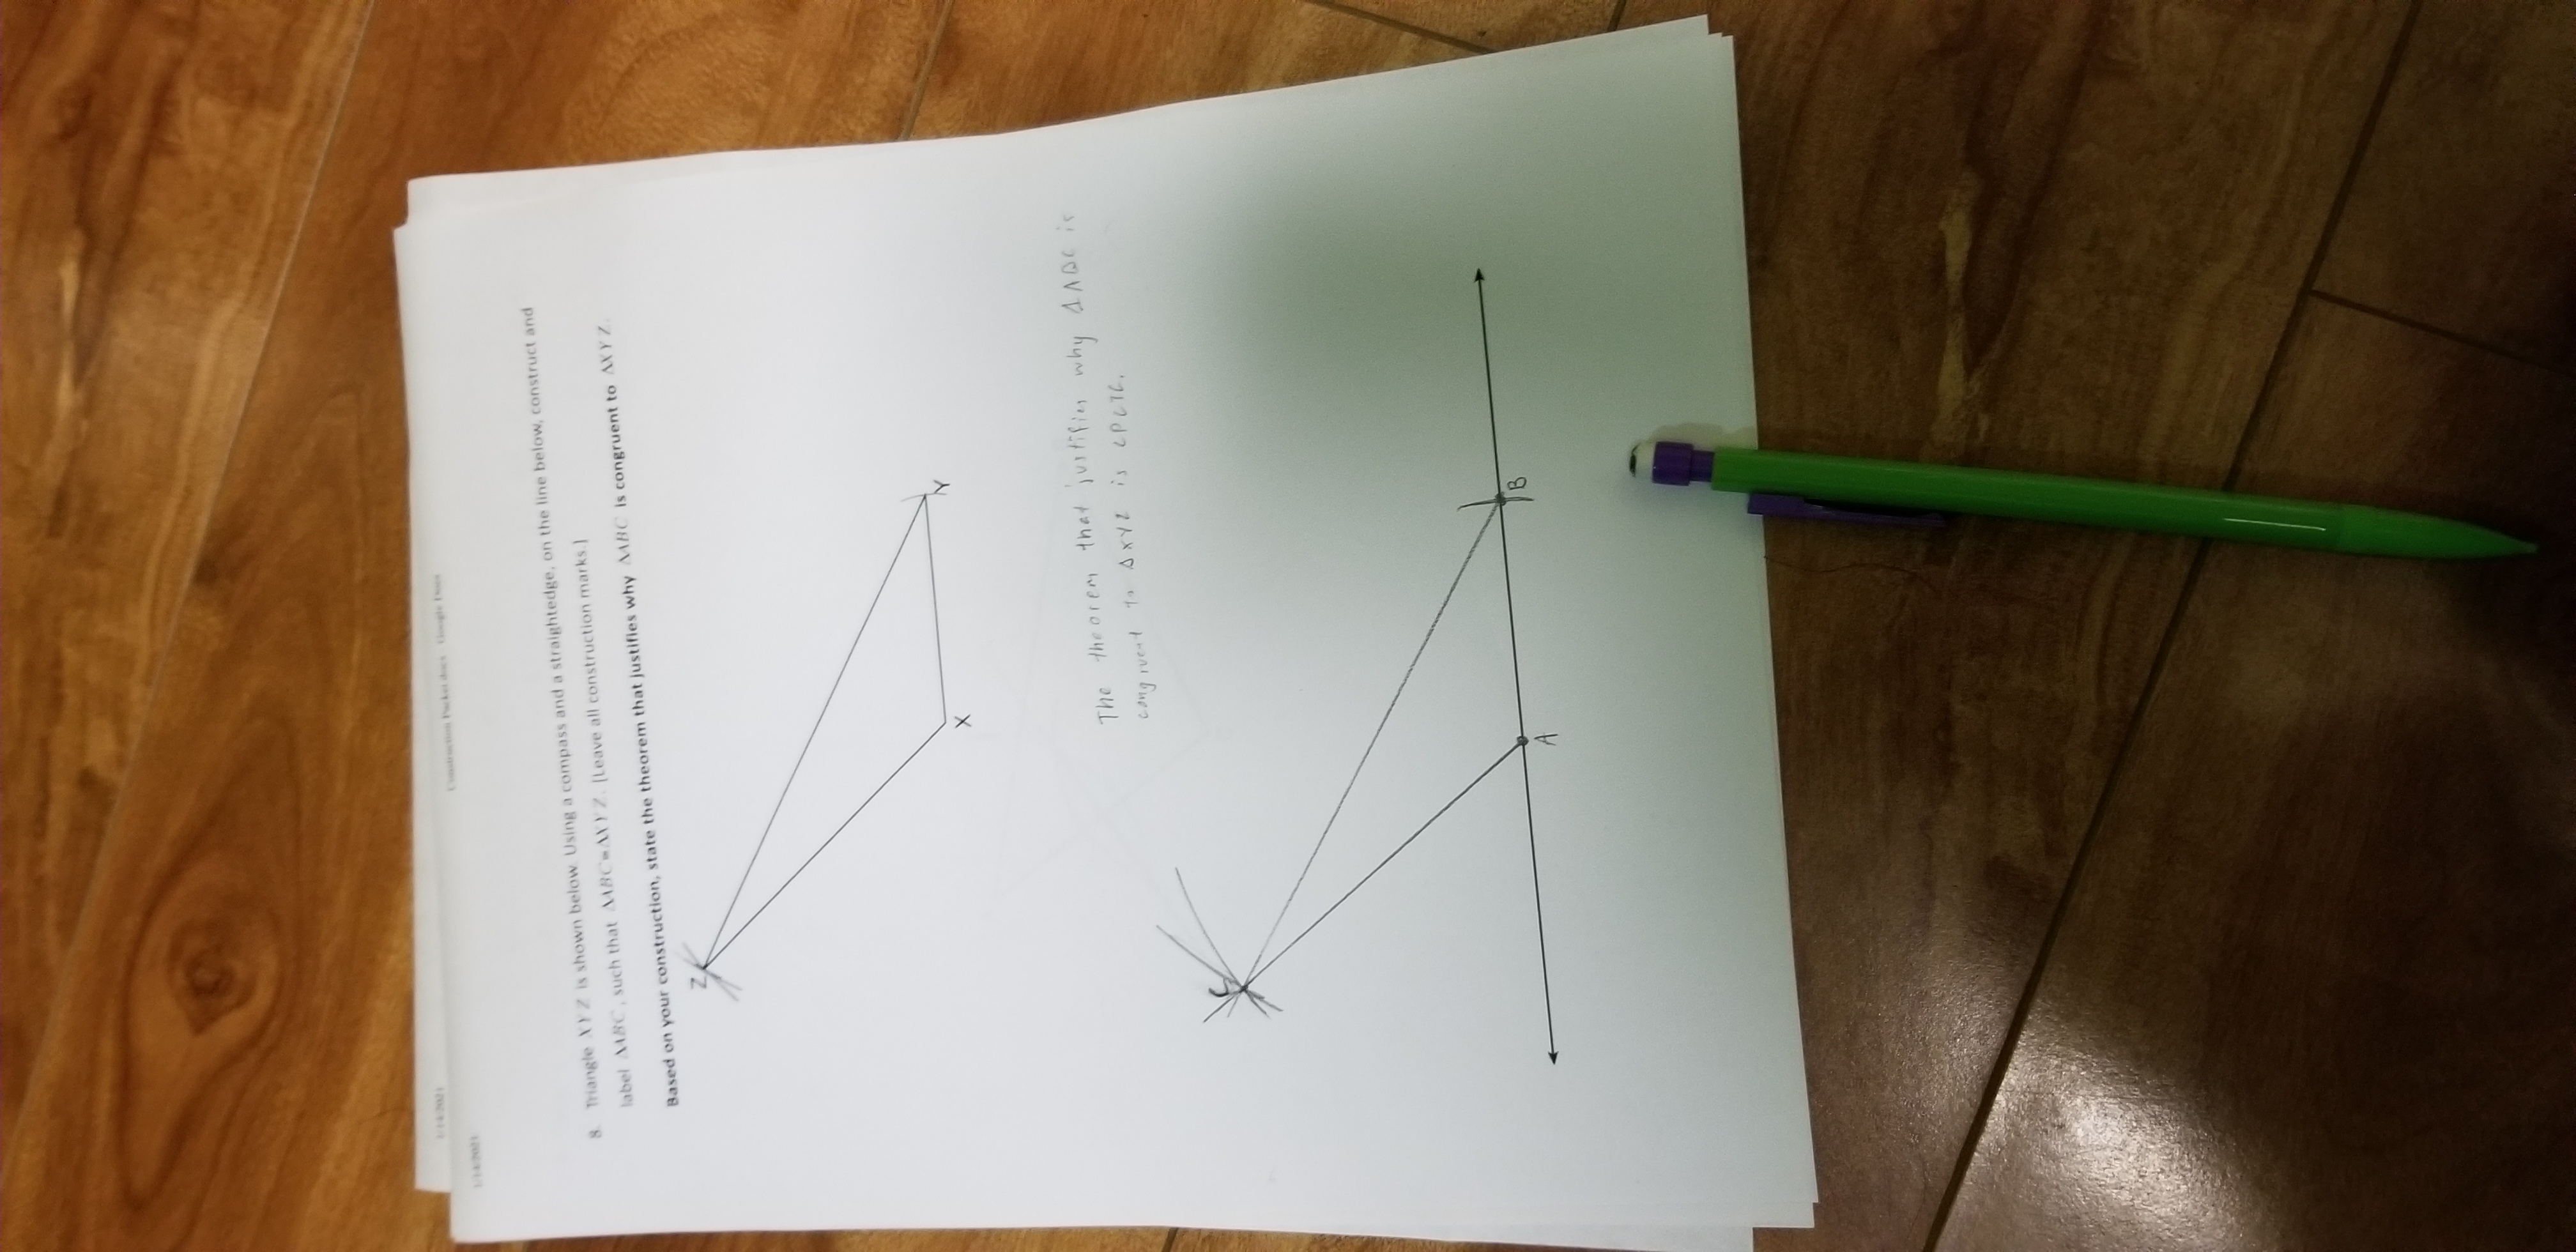 1/14/2021
Construction Packet.docx - Google Docs
1/14/2021
8. Triangle XYZ is shown below. Using a compass and a straightedge, on the line below, construct and
label ΔABC, such that ΔABC≅ΔXYZ. [Leave all construction marks.]
Based on your construction, state the theorem that justifies why ΔABC is congruent to ΔXYZ.
Z
Y
X
The theorem that justifies why ΔABC is
congruent to ΔXYZ is CPCTC.
C
B
A